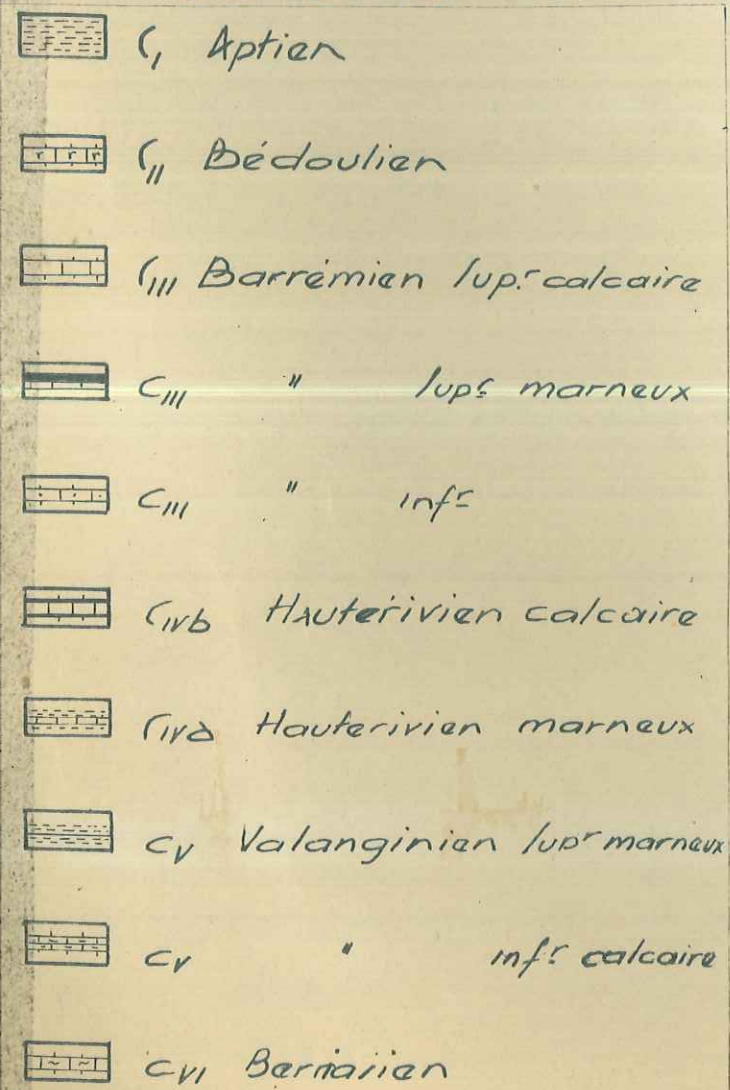 C_I Aptien
C_II Bédoulien
C_III Barrémien supr calcaire
C_III " supr marneux
C_III " infr
C_IVb Hautérivien calcaire
C_IVa Hauterivien marneux
C_V Valanginien supr marneux
C_V " infr calcaire
C_VI Berriasien